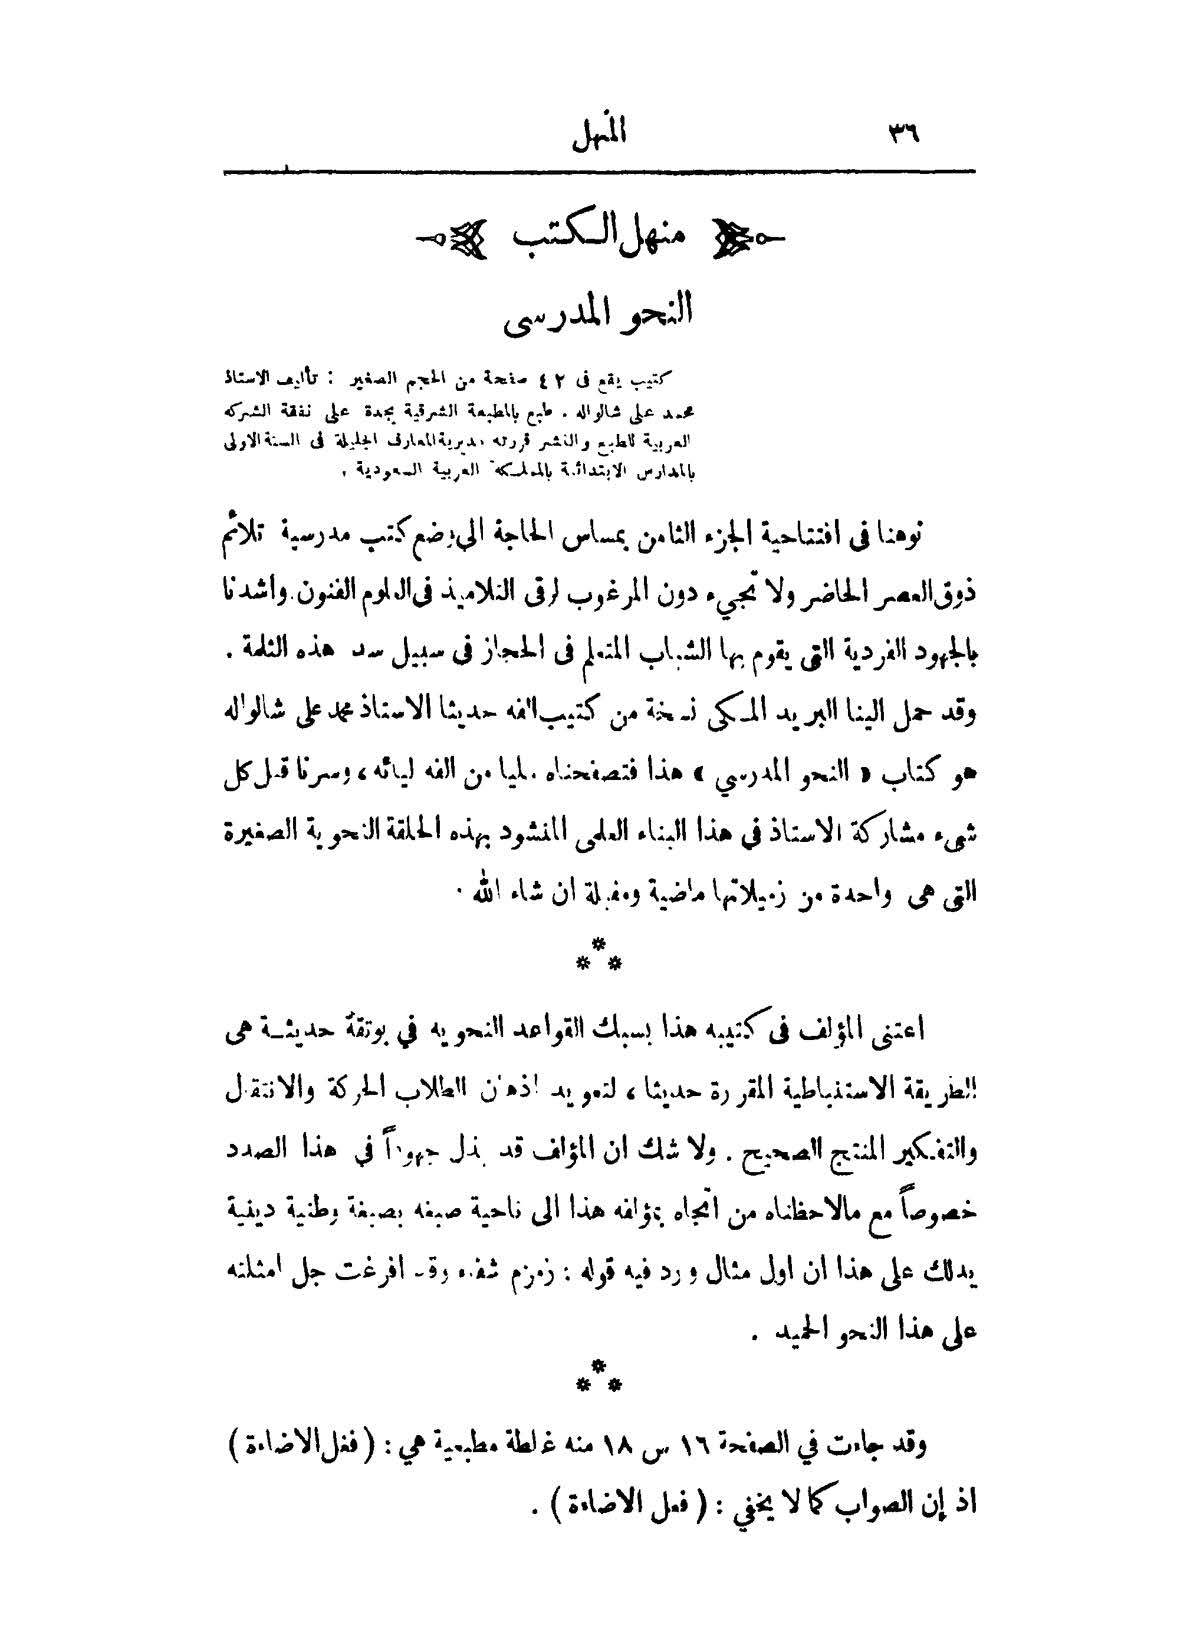 ٣٦
المنهل
منهل الكتب
النحو المدرسى
كتيب يقع فى ٤٢ صفحة من الحجم الصغير : تأليف الاستاذ
محمد على شالواله . طبع بالمطبعة الشرقية بجدة على نفقة الشركه
العربية للطبع والنشر قررته مديرية المعارف الجليلة فى السنة الاولى
بالمدارس الابتدائية بالمملكة العربية السعودية .
نوهنا فى افتتاحية الجزء الثامن بمساس الحاجة الى وضع كتب مدرسية تلائم
ذوق العصر الحاضر ولا تجىء دون المرغوب لرقى التلاميذ فى العلوم الفنون واشدنا
بالجهود الفردية التى يقوم بها الشباب المتعلم فى الحجاز فى سبيل سد هذه الثلمة .
وقد حمل الينا البريد المكى نسخة من كتيب الفه حديثا الاستاذ محمد على شالواله
هو كتاب « النحو المدرسي » هذا فتصفحناه مليا من الفه ليائه ، وسرنا قبل كل
شىء مشاركة الاستاذ في هذا البناء العلمى المنشود بهذه الحلقة النحوية الصغيرة
التى هى واحدة من زميلاتها ماضية ومقبلة ان شاء الله .
***
اعتنى المؤلف فى كتيبه هذا بسبك القواعد النحويه في بوتقة حديثة هى
الطريقة الاستنباطية المقررة حديثا ، لتعويد اذهان الطلاب الحركة والانتقال
والتفكير المنتج الصحيح . ولا شك ان المؤلف قد بذل جهوداً في هذا الصدد
خصوصاً مع مالاحظناه من اتجاه بمؤلفه هذا الى ناحية صبغه بصبغة وطنية دينية
يدلك على هذا ان اول مثال ورد فيه قوله : زمزم شفاء وقد افرغت جل امثلته
على هذا النحو الحميد .
***
وقد جاءت في الصفحة ١٦ س ١٨ منه غلطة مطبعية هي : ( فغل الاضاءة )
اذ إن الصواب كما لا يخفي : ( فعل الاضاءة ) .